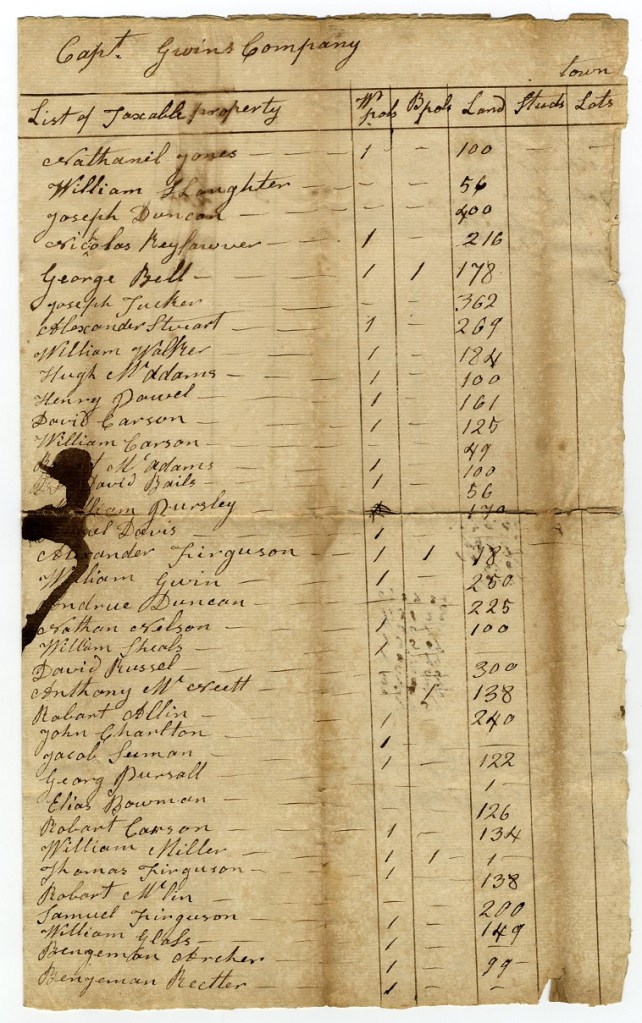 Capt. Gwins Company
town
List of Taxable property Wt pols B pols Land Studs Lots
Nathanil Jones — — — 1 — 100 — —
William Slaughter — — — 56
Joseph Duncan — — — — 400
Nicolas Keyfawver — — 1 — 216
George Bell — — — 1 1 178
Joseph Tucker — — — — 362
Alexander Stuart — — 1 — 269
William Walker — — 1 — 184
Hugh McAdams — — 1 — 100
Henry Powel — — 1 — 161
David Carson — — 1 — 125
William Carson — — — 49
McAdams — — 1 — 100
David Bails — — 1 — 56
William Pursley — — 170
Davis — — 1
Alexander Firguson — 1 1 18
William Gwin — — 1 — 250
Andrue Duncan — — — 225
Nathan Nelson — — 1 — 100
William Sheals — — 1 —
David Russel — — 300
Anthony McNeett — — 1 138
Robart Allin — — 1 — 240
John Charlton — — 1 —
Jacob Seman — — 1 — 122
Georg Pursall — — 1 —
Elias Bowman — — — 126
Robart Carson — — 1 — 134
William Miller — — 1 1 1 —
Thomas Firguson — — 1 — 138
Robart McLin — — 200
Samuel Firguson — — 1 — 149
William Glass — — 1 —
Bengeman Archer — — 1 — 99 —
Bengeman Rectter — — 1 —